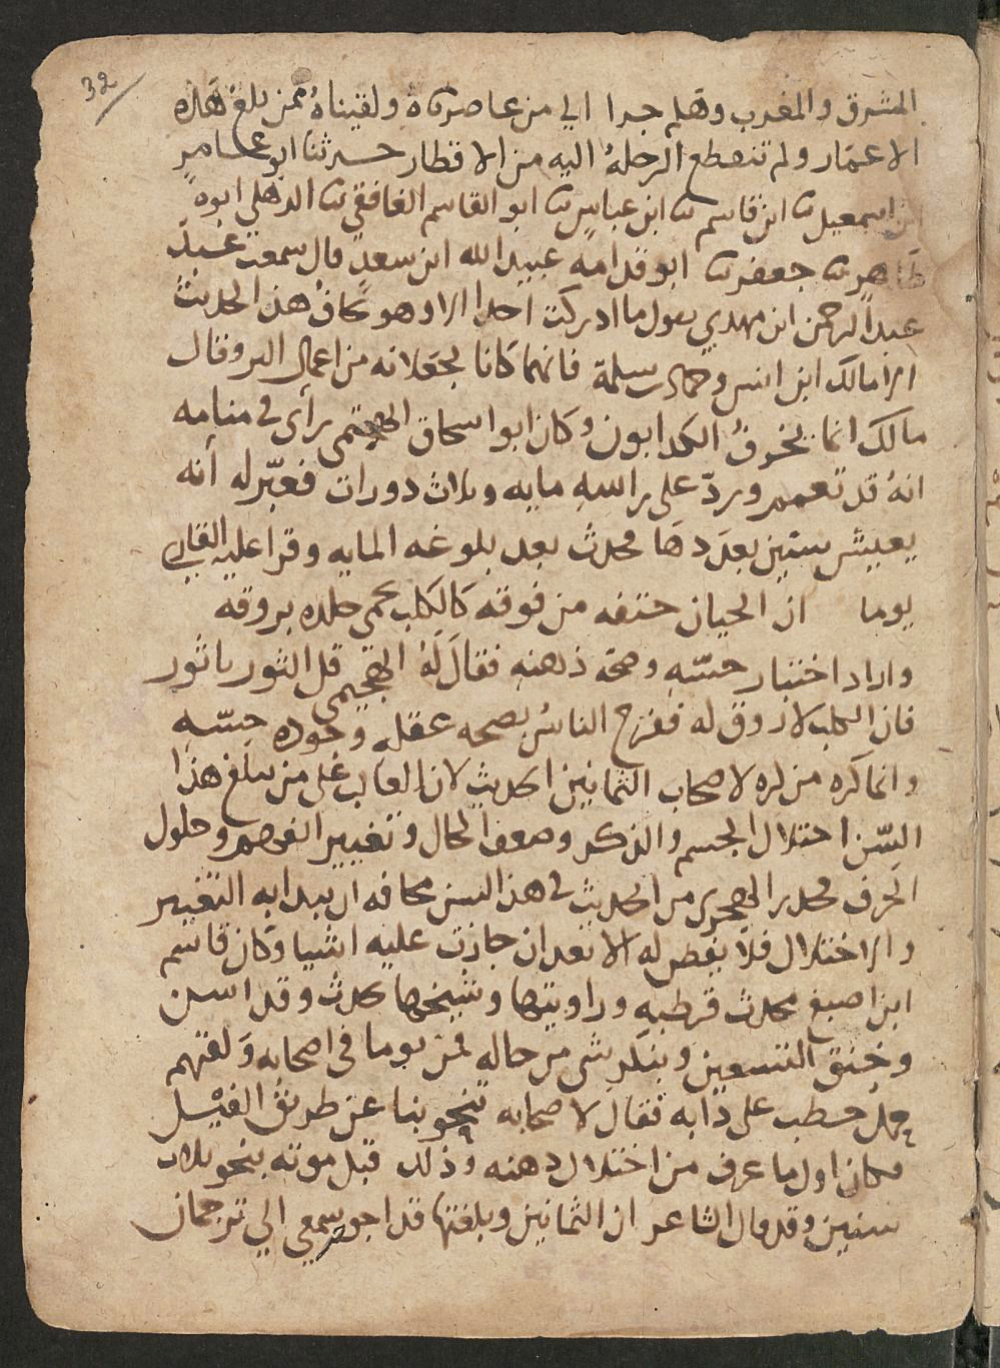 32
المشرق والمغرب وهلم جرا الي من عاصرناه ولقيناه ممن بلغ هذه
الاعمار ولم تنقطع الرحلة اليه من الاقطار حدثنا ابو عامر
ابن اسمعيل نا ابن قاسم نا ابن عباس نا ابو القاسم الغافقي نا الذهلي ابوه
طاهر نا جعفر نا ابو قدامه عبيد الله ابن سعد قال سمعت عبد
عبد الرحمن ابن مهدي يقول ما ادركت احدا الا وهو يخاف هذا الحديث
الا مالك ابن انس وحماد بن سلمة فانهما كانا يجعلانه من اعمال البر وقال
مالك انما يخرف الكدابون وكان ابو اسحاق الهجيمي رأى في منامه
انه قد تعمم وردّ على راسه مايه وثلاث دورات فعبّر له أنه
يعيش سنين بعددها فحدث بعد بلوغه المايه وقرا عليه القاري
يوما ان الجبان حتفه من فوقه كالكلب يحمي جلده بروقه
واراد اختبار حسّه وصحة ذهنه فقال له الهجيمي قل الثور يا ثور
فان الكلب لا روق له ففرح الناس بصحه عقله وجوده حسّه
وانما كره من كره لاصحاب الثمانين الحديث لان الغالب على من يبلغ هذا
السّن اختلال الجسم والذكر وضعف الحال وتغيير الفهم وحلول
الخرف فحذر من الحديث في هذا السن مخافه ان يبدا به التغيير
والاختلال فلا يفطن له الا بعد ان جازت عليه اشيا وكان قاسم
ابن اصبغ محدث قرطبه وراويتها وشيخها يحدث وقد اسن
وخنق التسعين وينكر شي من حاله فمر يوما في اصحابه ولقتهم
حمل حطب على دابه فقال لاصحابه تنحو بنا عن طريق الفيل
فكان اول ما عرف من اختلال ذهنه وذلك قبل موته بنحو ثلاث
سنين وقد قال الشاعر ان الثمانين وبلغتها قد احوجت سمعي الي ترجمان